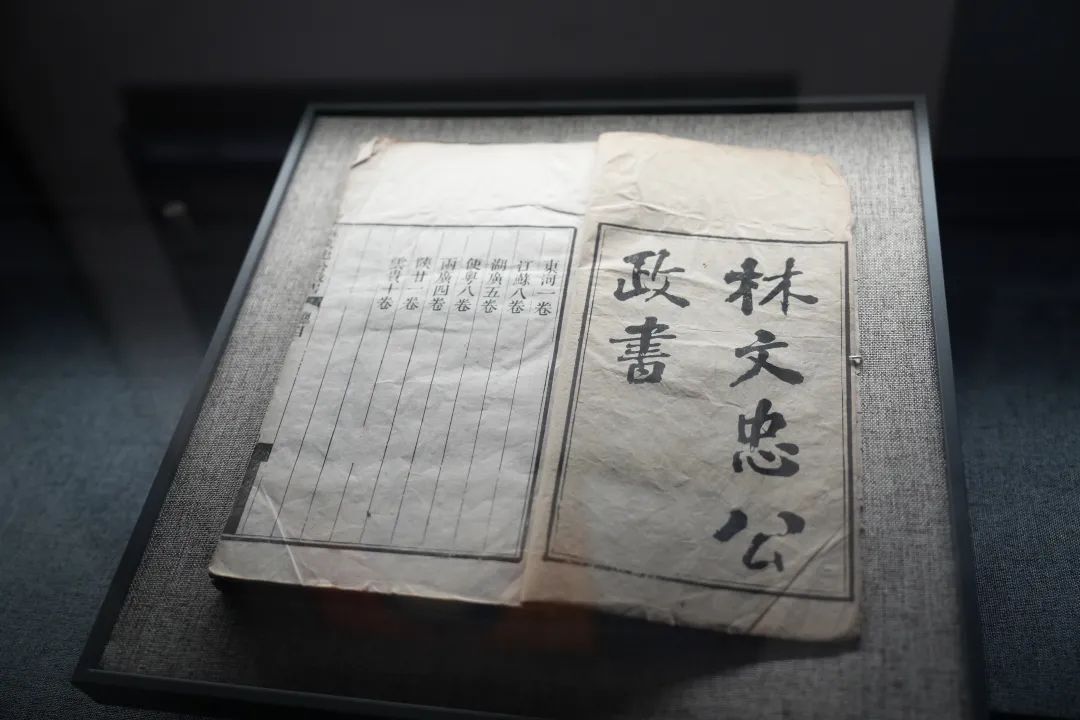 林文忠公
政書
東河一卷
江蘇八卷
湖廣五卷
使粵八卷
兩廣四卷
陝甘一卷
雲貴十卷